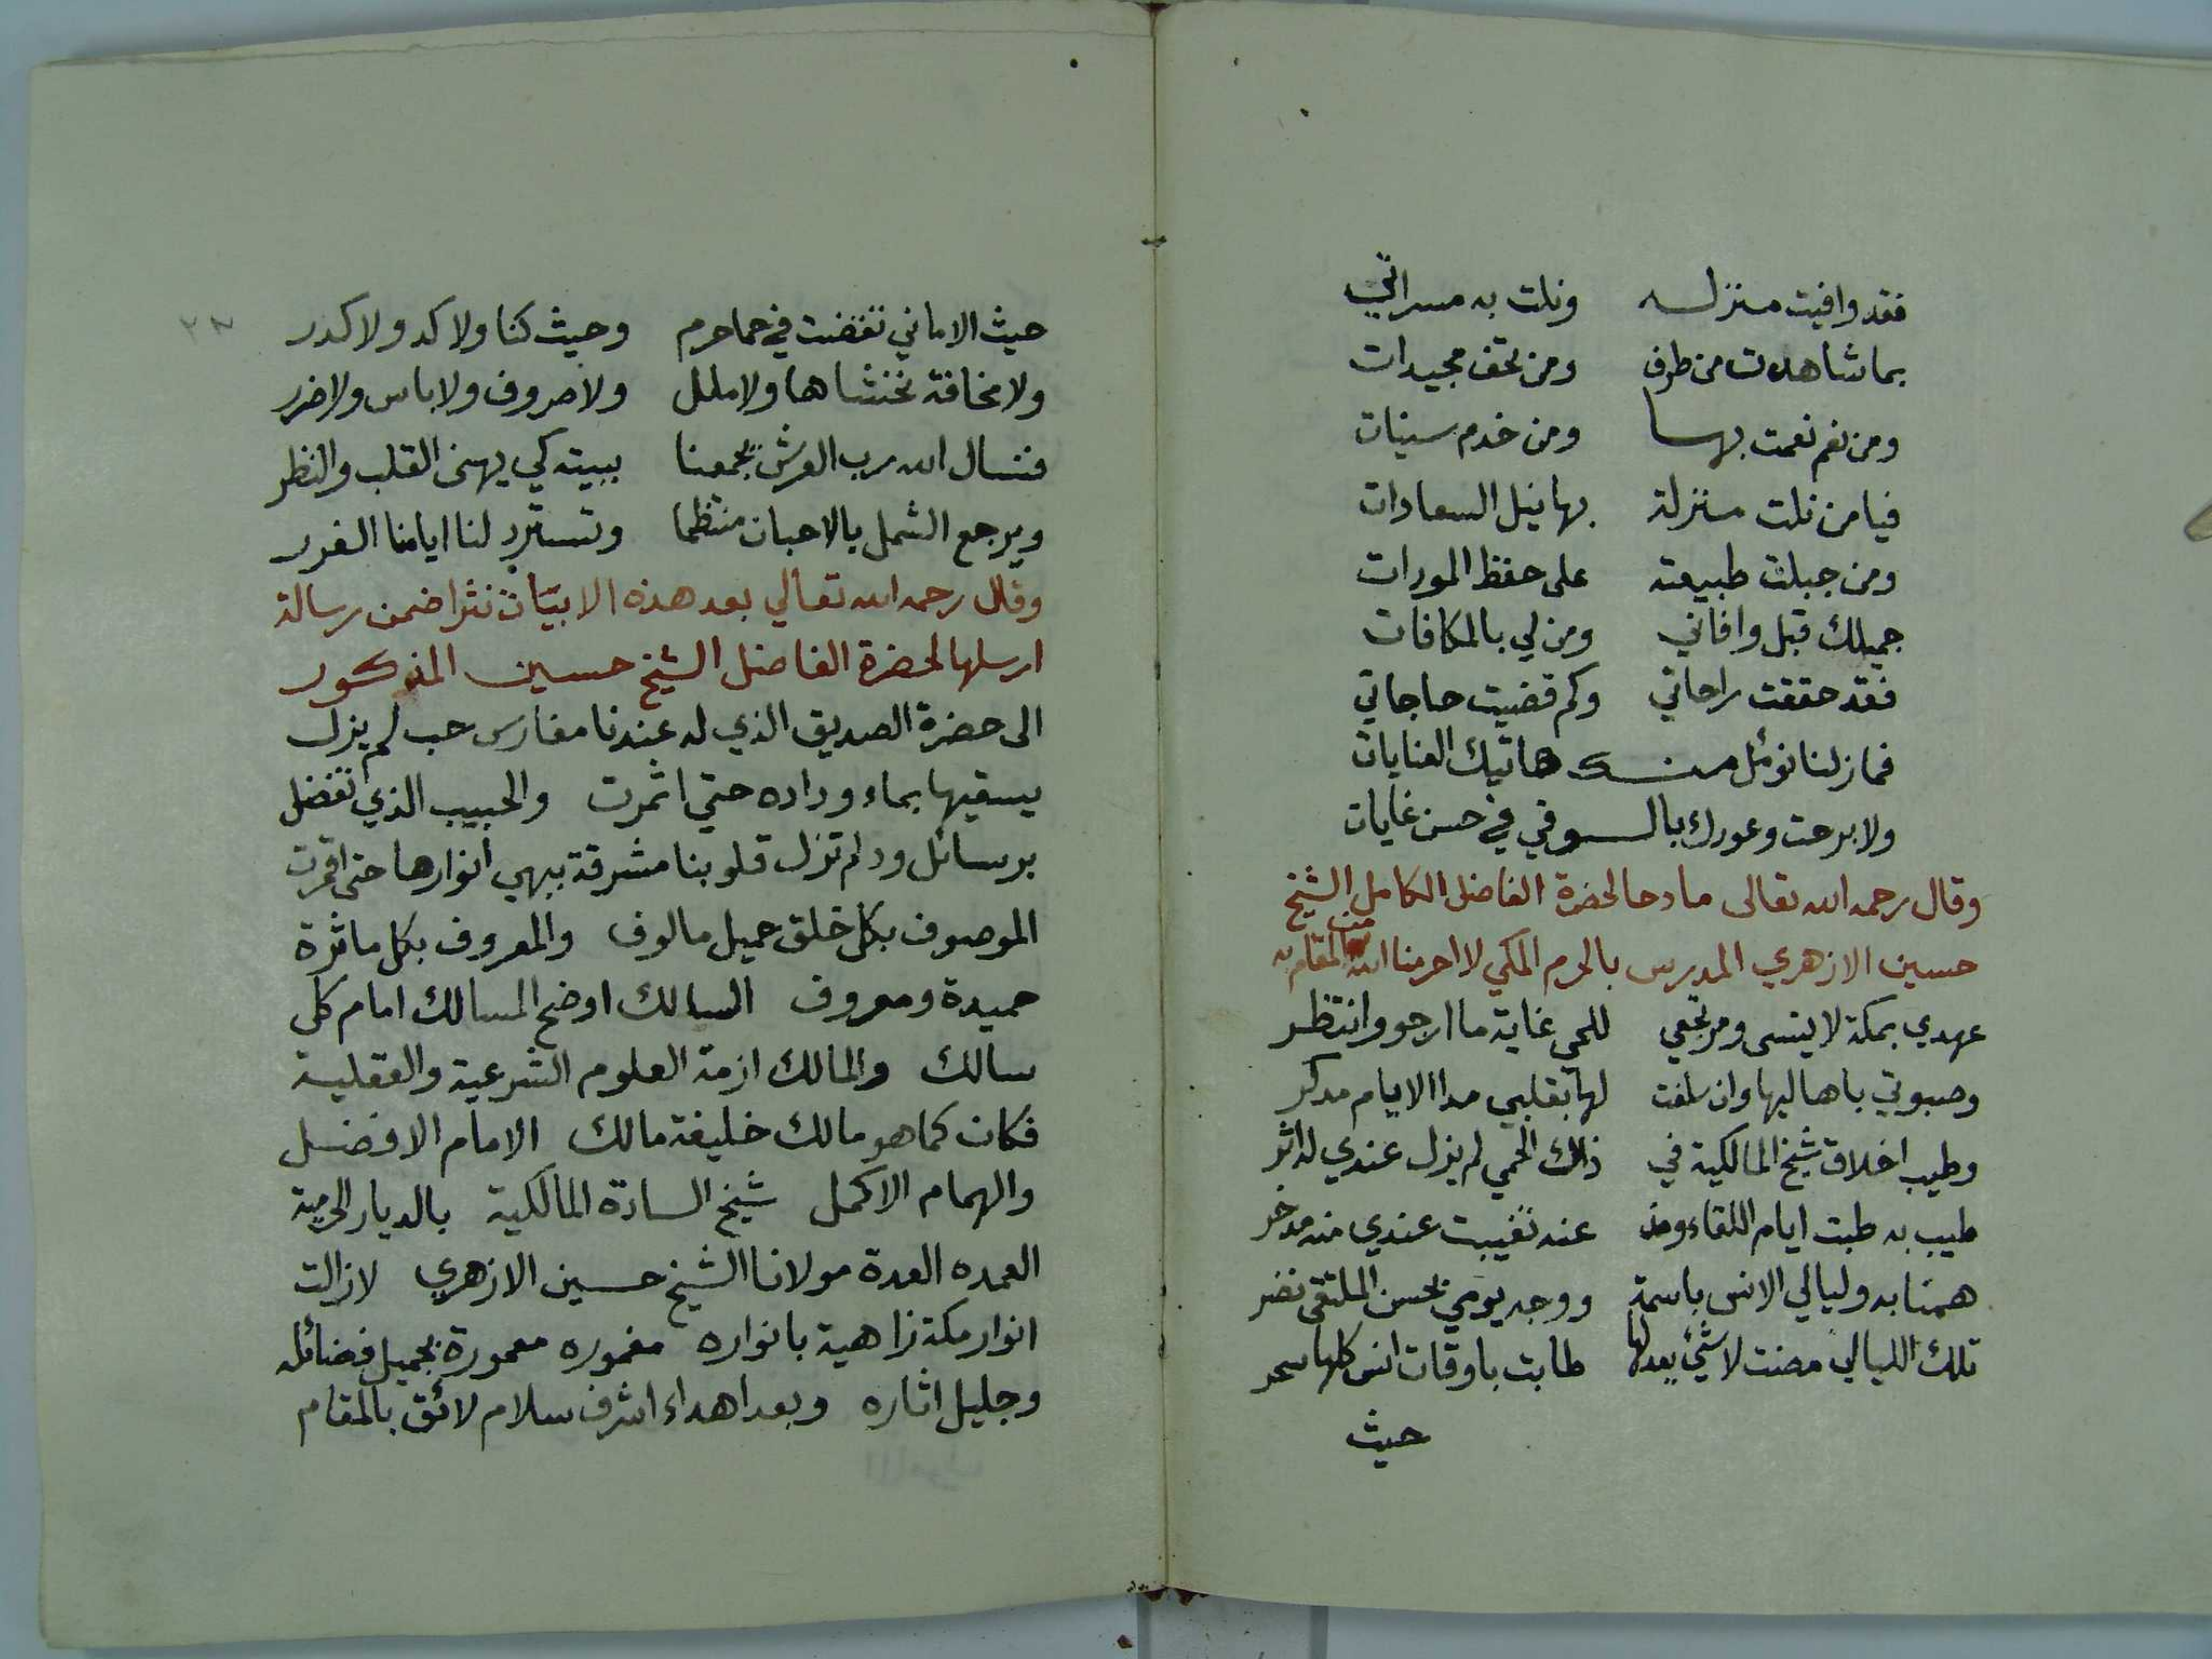 فقد وافيت منزله ونلت به مسراتي
بما شاهدت من طرف ومن تحف مجيدات
ومن نعم نعمت بها ومن خدم سينات
فيامن نلت منزلة بها نيل السعادات
ومن جبلت طبيعته على حفظ المودات
جميلك قبل وافاني ومن لي بالمكافات
فقد حققت راحاتي وكم قضيت حاجاتي
فمازلنا نوئمل منك هاتيك العنايات
ولا برحت وعودك بالوفي في حسن غايات
وقال رحمه الله تعالى مادحا لحضرة الفاضل الكامل الشيخ
حسين الازهري المدرس بالحرم المكي لا احرمنا الله من المقام به
عهدي بمكة لا ينسى ومرتجعي للحمي غاية ما ارجو وانتظر
وصبوتي باهاليها وان سلفت لها بقلبي مدا الايام مدكر
وطيب اخلاق شيخ المالكية في ذاك الحمي لم يزل عندي له اثر
طيب به طبت ايام اللقاء ومذ عنه تغيبت عندي منه مدخر
همنا به وليالي الانس باسمة ووجه يومي بحسن الملتقى نضر
تلك الليالي مضت لا شئ يعدلها طابت باوقات انس كلها سحر
حيث
حيث الاماني تقضت في حما حرم وحيث كنا ولا كد ولا كدر
ولا مخافة نخشاها ولا ملل ولا صروف ولا باس ولا ضرر
فنسال الله رب العرش يجمعنا ببيته كي يهنى القلب والنظر
ويرجع الشمل بالاحباب منتظما وتسترد لنا ايامنا الغرر
وقال رحمه الله تعالي بعد هذه الابيات نثرا ضمن رسالة
ارسلها لحضرة الفاضل الشيخ حسين المذكور
الى حضرة الصديق الذي له عندنا مغارس حب لم يزل
يسقيها بماء وداده حتي اثمرت والحبيب الذي تفضل
برسائل ود لم تزل قلوبنا مشرقة ببهي انوارها حتى اقمرت
الموصوف بكل خلق جميل مالوف والمعروف بكل ماثرة
حميدة ومعروف السالك اوضح المسالك امام كل
سالك والمالك ازمة العلوم الشرعية والعقلية
فكان كما هو مالك خليفة مالك الامام الافضل
والهمام الاكمل شيخ السادة المالكية بالديار الحرمية
العمده العدة مولانا الشيخ حسين الازهري لازالت
انوار مكة زاهية بانواره مغموره معمورة بجميل فضائله
وجليل اثاره وبعد اهداء اشرف سلام لائق بالمقام